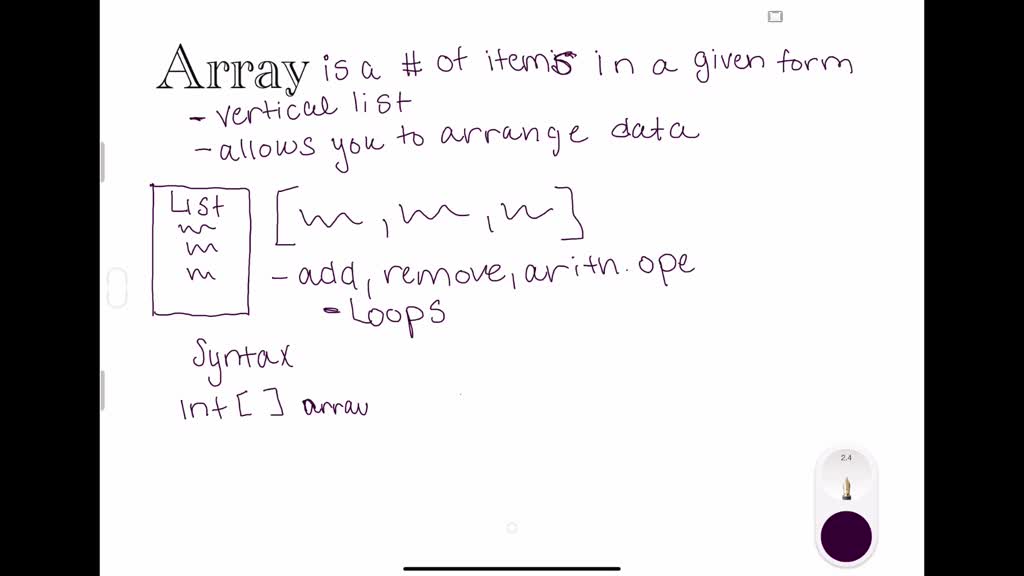 Array is a # of items in a given form
- vertical list
- allows you to arrange data
List
[ , , ]
- add, remove, arith. ope
- Loops
Syntax
int [ ] array
2.4